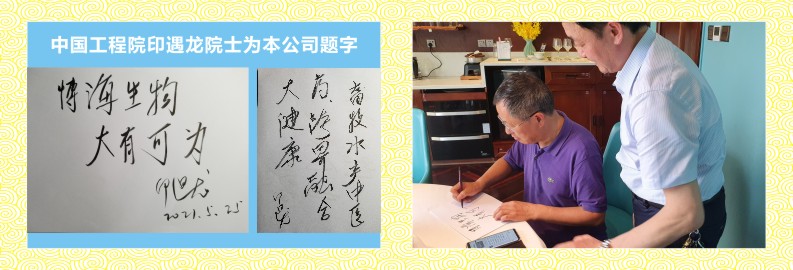 中国工程院印遇龙院士为本公司题字
博海生物
大有可为
印遇龙
2021.5.25
畜牧水产中医
药、跨界融合
大健康